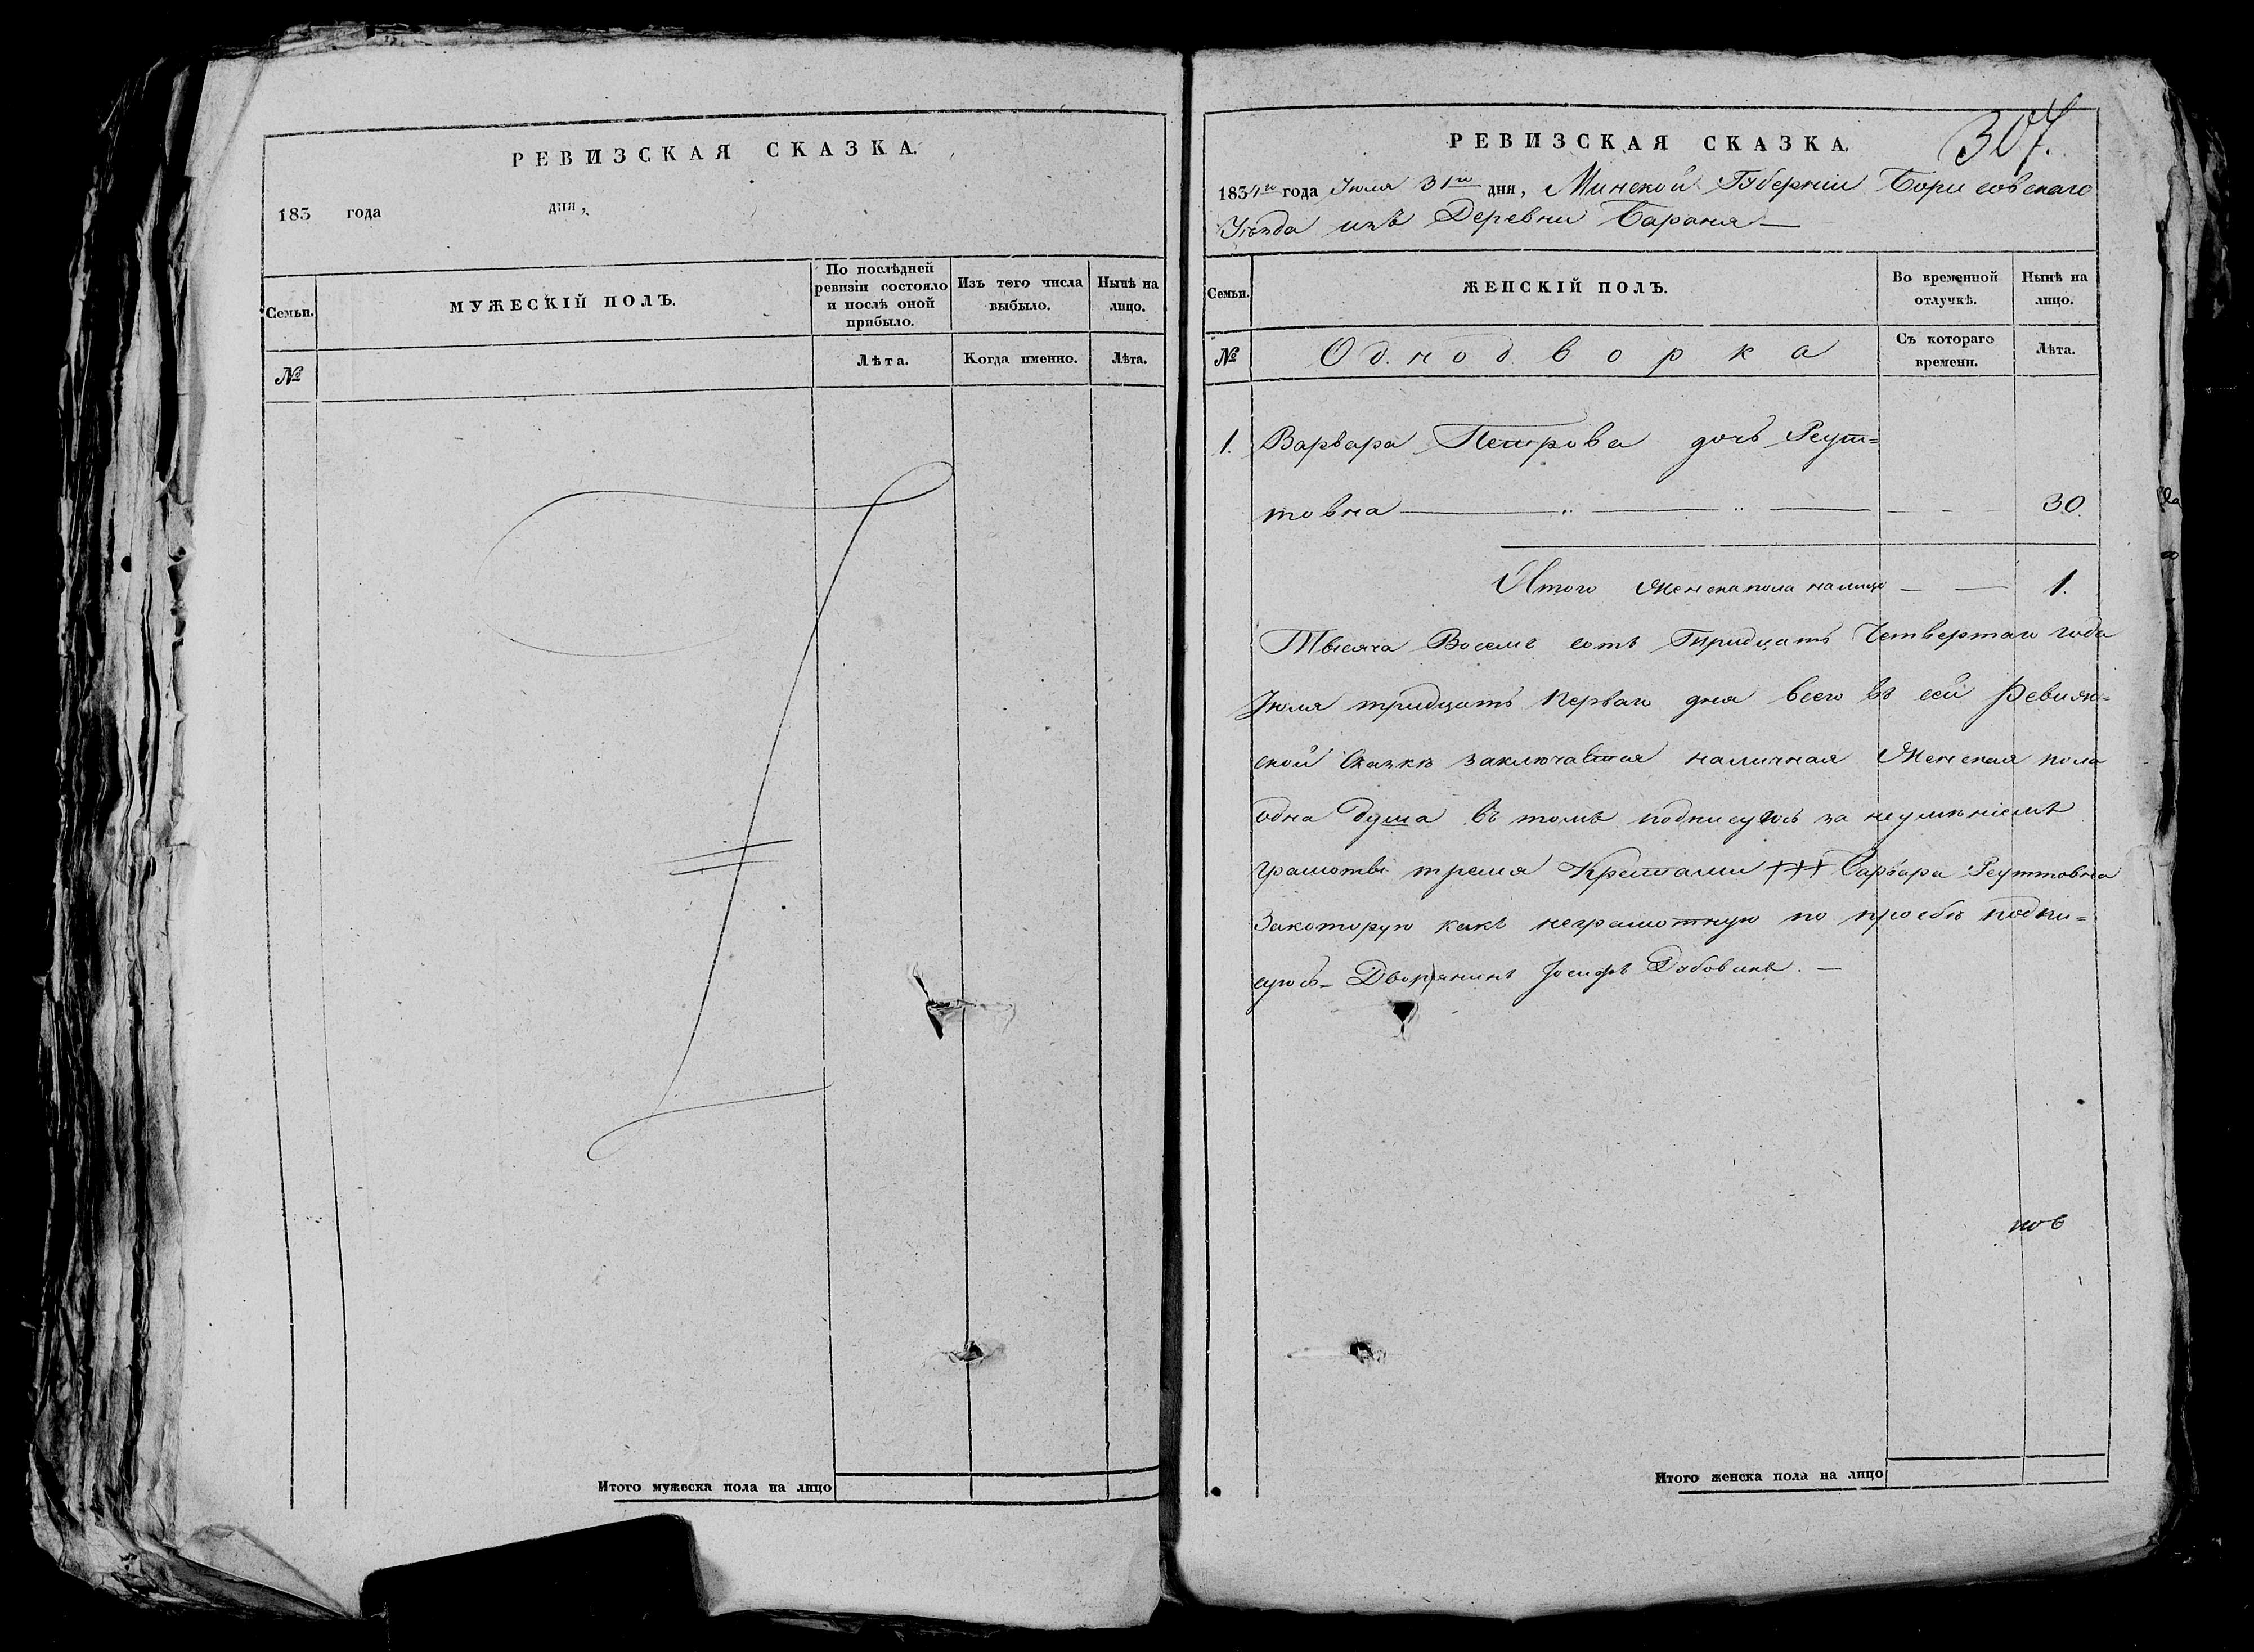 РЕВИЗСКАЯ СКАЗКА.
183 года дня,
Семьи.
МУЖЕСКІЙ ПОЛЪ.
По послѣдней ревизіи состояло и послѣ оной прибыло.
Изъ того числа выбыло.
Нынѣ на лицо.
№
Лѣта.
Когда именно.
Лѣта.
Итого мужеска пола на лицо
307.
РЕВИЗСКАЯ СКАЗКА.
1834го года Іюля 31го дня, Минской Губерніи Борисовскаго
Уѣзда изъ Деревни Бараня —
Семьи.
ЖЕНСКІЙ ПОЛЪ.
Во временной отлучкѣ.
Нынѣ на лицо.
№
Однодворка
Съ котораго времени.
Лѣта.
1. Варвара Петрова дочь Реут=
товна — 30.
Итого женска пола налицо — 1.
Тысяча Восемь сотъ Тридцать Четвертаго года
Іюля тридцать перваго дня всего въ сей Ревиж=
ской Сказкѣ заключается наличная Женская пола
одна душа въ томъ подписуюсь за неумѣніемъ
грамоты тремя Крестами +++ Варвара Реуттовна
Закоторую какъ неграмотную по просбѣ подпи=
суюсь – Дворянинъ Іосифъ Дубовикъ. —
Итого женска пола на лицо